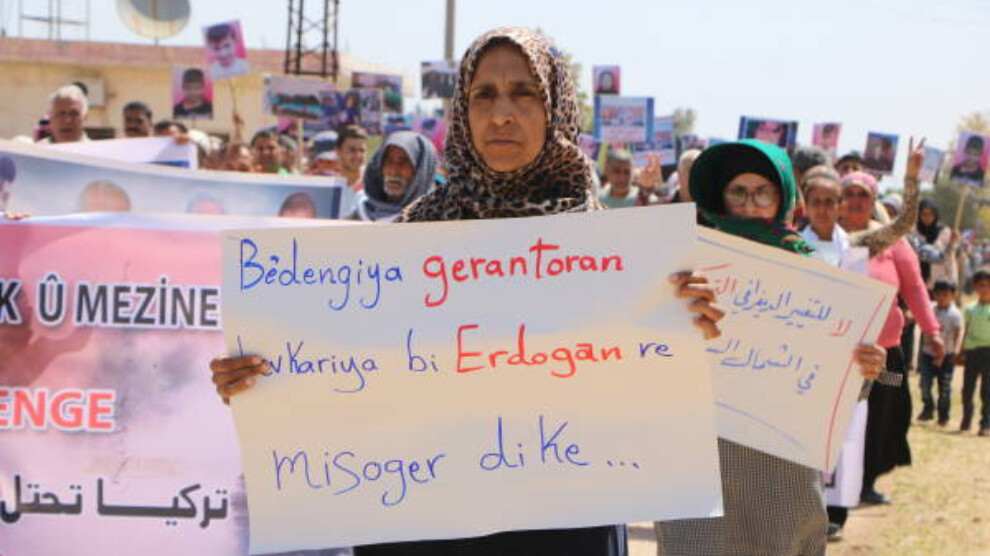 Bêdengiya gerantoran
hevkariya bi Erdogan re
misoger dike...
K Û MEZINE
ENGE
تركيا تحتل
لا للتغيير الديمغرافي
في الشمال